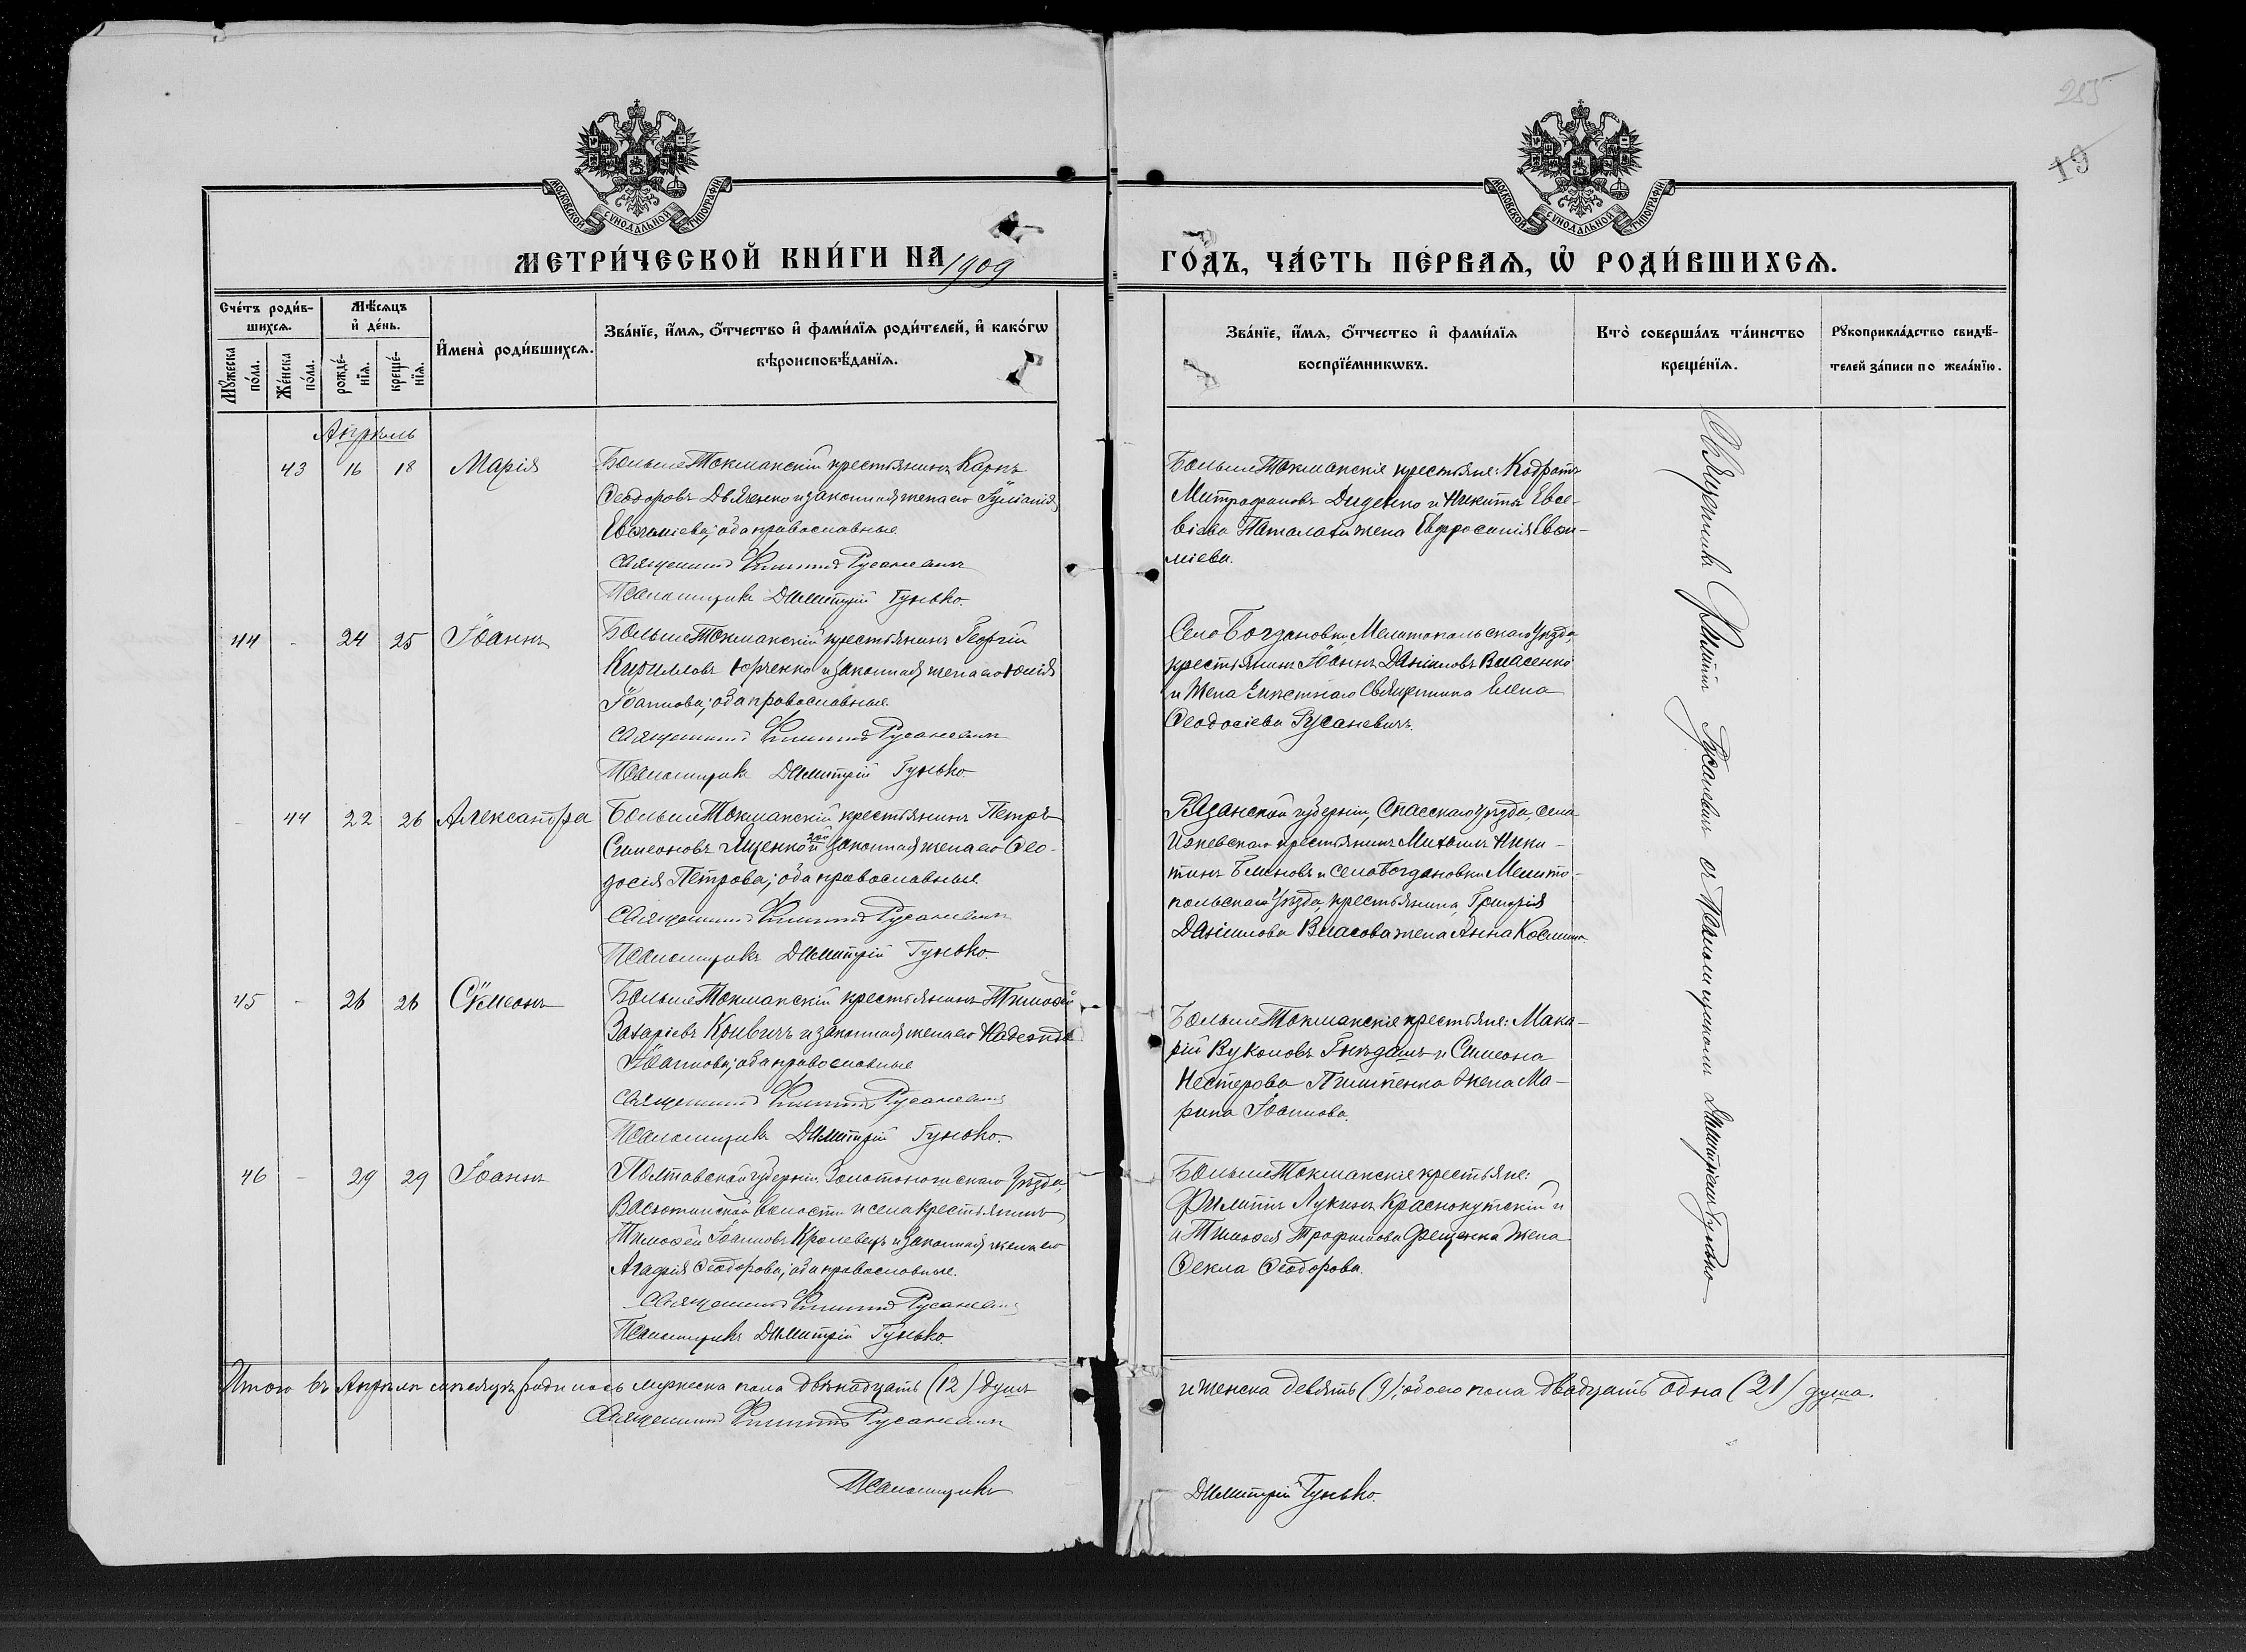 255
19
МОСКОВСКОЙ СУНОДАЛЬНОЙ ТИПОГРАФІИ
МОСКОВСКОЙ СУНОДАЛЬНОЙ ТИПОГРАФІИ
МЕТРИ́ЧЕСКОЙ КНИ́ГИ НА 1909
ГО́ДЪ, ЧА́СТЬ ПЕ́РВАѦ, Ѡ҆ РОДИ́ВШИХСѦ.
Сче́тъ роди́в-
шихсѧ.
Мꙋжеска
по́ла.
Же́нска
по́ла.
Мѣ́сѧцъ
и҆ де́нь.
рожде́-
нїѧ.
креще́-
нїѧ.
И҆мена̀ роди́вшихсѧ.
Зва́нїе, и҆́мѧ, ѻ҆́тчество и҆ фами́лїѧ роди́телей, и҆ како́гѡ
вѣроисповѣ́данїѧ.
Зва́нїе, и҆́мѧ, ѻ҆́тчество и҆ фами́лїѧ
воспрїе́мникѡвъ.
Кто̀ соверша́лъ та́инство
креще́нїѧ.
Рꙋкоприкла́дство свидѣ́-
телей за́писи по жела́нїю.
Апрѣль
43 16 18 Марія
БольшеТокмакскій крестьянинъ Карпъ
Ѳеодоровъ Дьяченко и законная жена его Іуліанія
Евѳиміева; оба православные.
Священникъ Филиппъ Русаневичъ
Псаломщикъ Димитрій Гунько.
БольшеТокмакскіе крестьяне: Кодратъ
Митрофановъ Диденко и Никиты Евсе-
віева жена Евфросинія Евѳи-
міева.
44 - 24 25 Іоаннъ
БольшеТокмакскій крестьянинъ Георгій
Кирилловъ Юрченко и законная жена его Юлія
Іоаннова; оба православные.
Священникъ Филиппъ Русаневичъ
Псаломщикъ Димитрій Гунько
Села Богдановки, Мелитопольскаго уѣзда,
крестьянинъ Іоаннъ Даніиловъ Власенко
и жена мѣстнаго Священника Елена
Ѳеодосіева Русаневичъ.
- 44 22 26 Александра
БольшеТокмакскій крестьянинъ Петръ
Симеоновъ Яценко и законная жена его Ѳео-
досія Петрова; оба православные.
Священникъ Филиппъ Русаневичъ
Псаломщикъ Димитрій Гунько.
Казанской губерніи, Спасскаго уѣзда, села
крестьянинъ Михаилъ Ники-
тинъ Блиновъ и села Богдановки Мелито-
польскаго уѣзда, крестьянина, Григорія
Даніилова Власова жена Анна Космина.
45 - 26 26 Сѷмеонъ
БольшеТокмакскій крестьянинъ Тимоѳей
Захаріевъ Кривичъ и законная жена его Надежда
Іоаннова; оба православные
Священникъ Филиппъ Русаневичъ
Псаломщикъ Димитрій Гунько.
БольшеТокмакскіе крестьяне: Мака-
рій Вуколовъ Гнѣдашъ и Симеона
Нестерова жена Ма-
рина Іоаннова.
46 - 29 29 Іоаннъ
Полтавской губерніи, Золотоношскаго уѣзда,
волости и села крестьянинъ
Тимоѳей Іоанновъ Кролевецъ и законная жена его
Агафія Ѳеодорова; оба православные.
Священникъ Филиппъ Русаневичъ
Псаломщикъ Димитрій Гунько.
БольшеТокмакскіе крестьяне:
Филиппъ Лукинъ Краснокутскій и
и Тимоѳея Трофимова Фещенка жена
Ѳекла Ѳеодорова.
Священникъ Филиппъ Русаневичъ съ Псаломщикомъ Димитріемъ Гунько
Итого въ Апрѣлѣ мѣсяцѣ родилось мужеска пола двѣнадцать (12) душъ
и женска девять (9); обоего пола двадцать одна (21) душа.
Священникъ Филиппъ Русаневичъ
Псаломщикъ Димитрій Гунько.